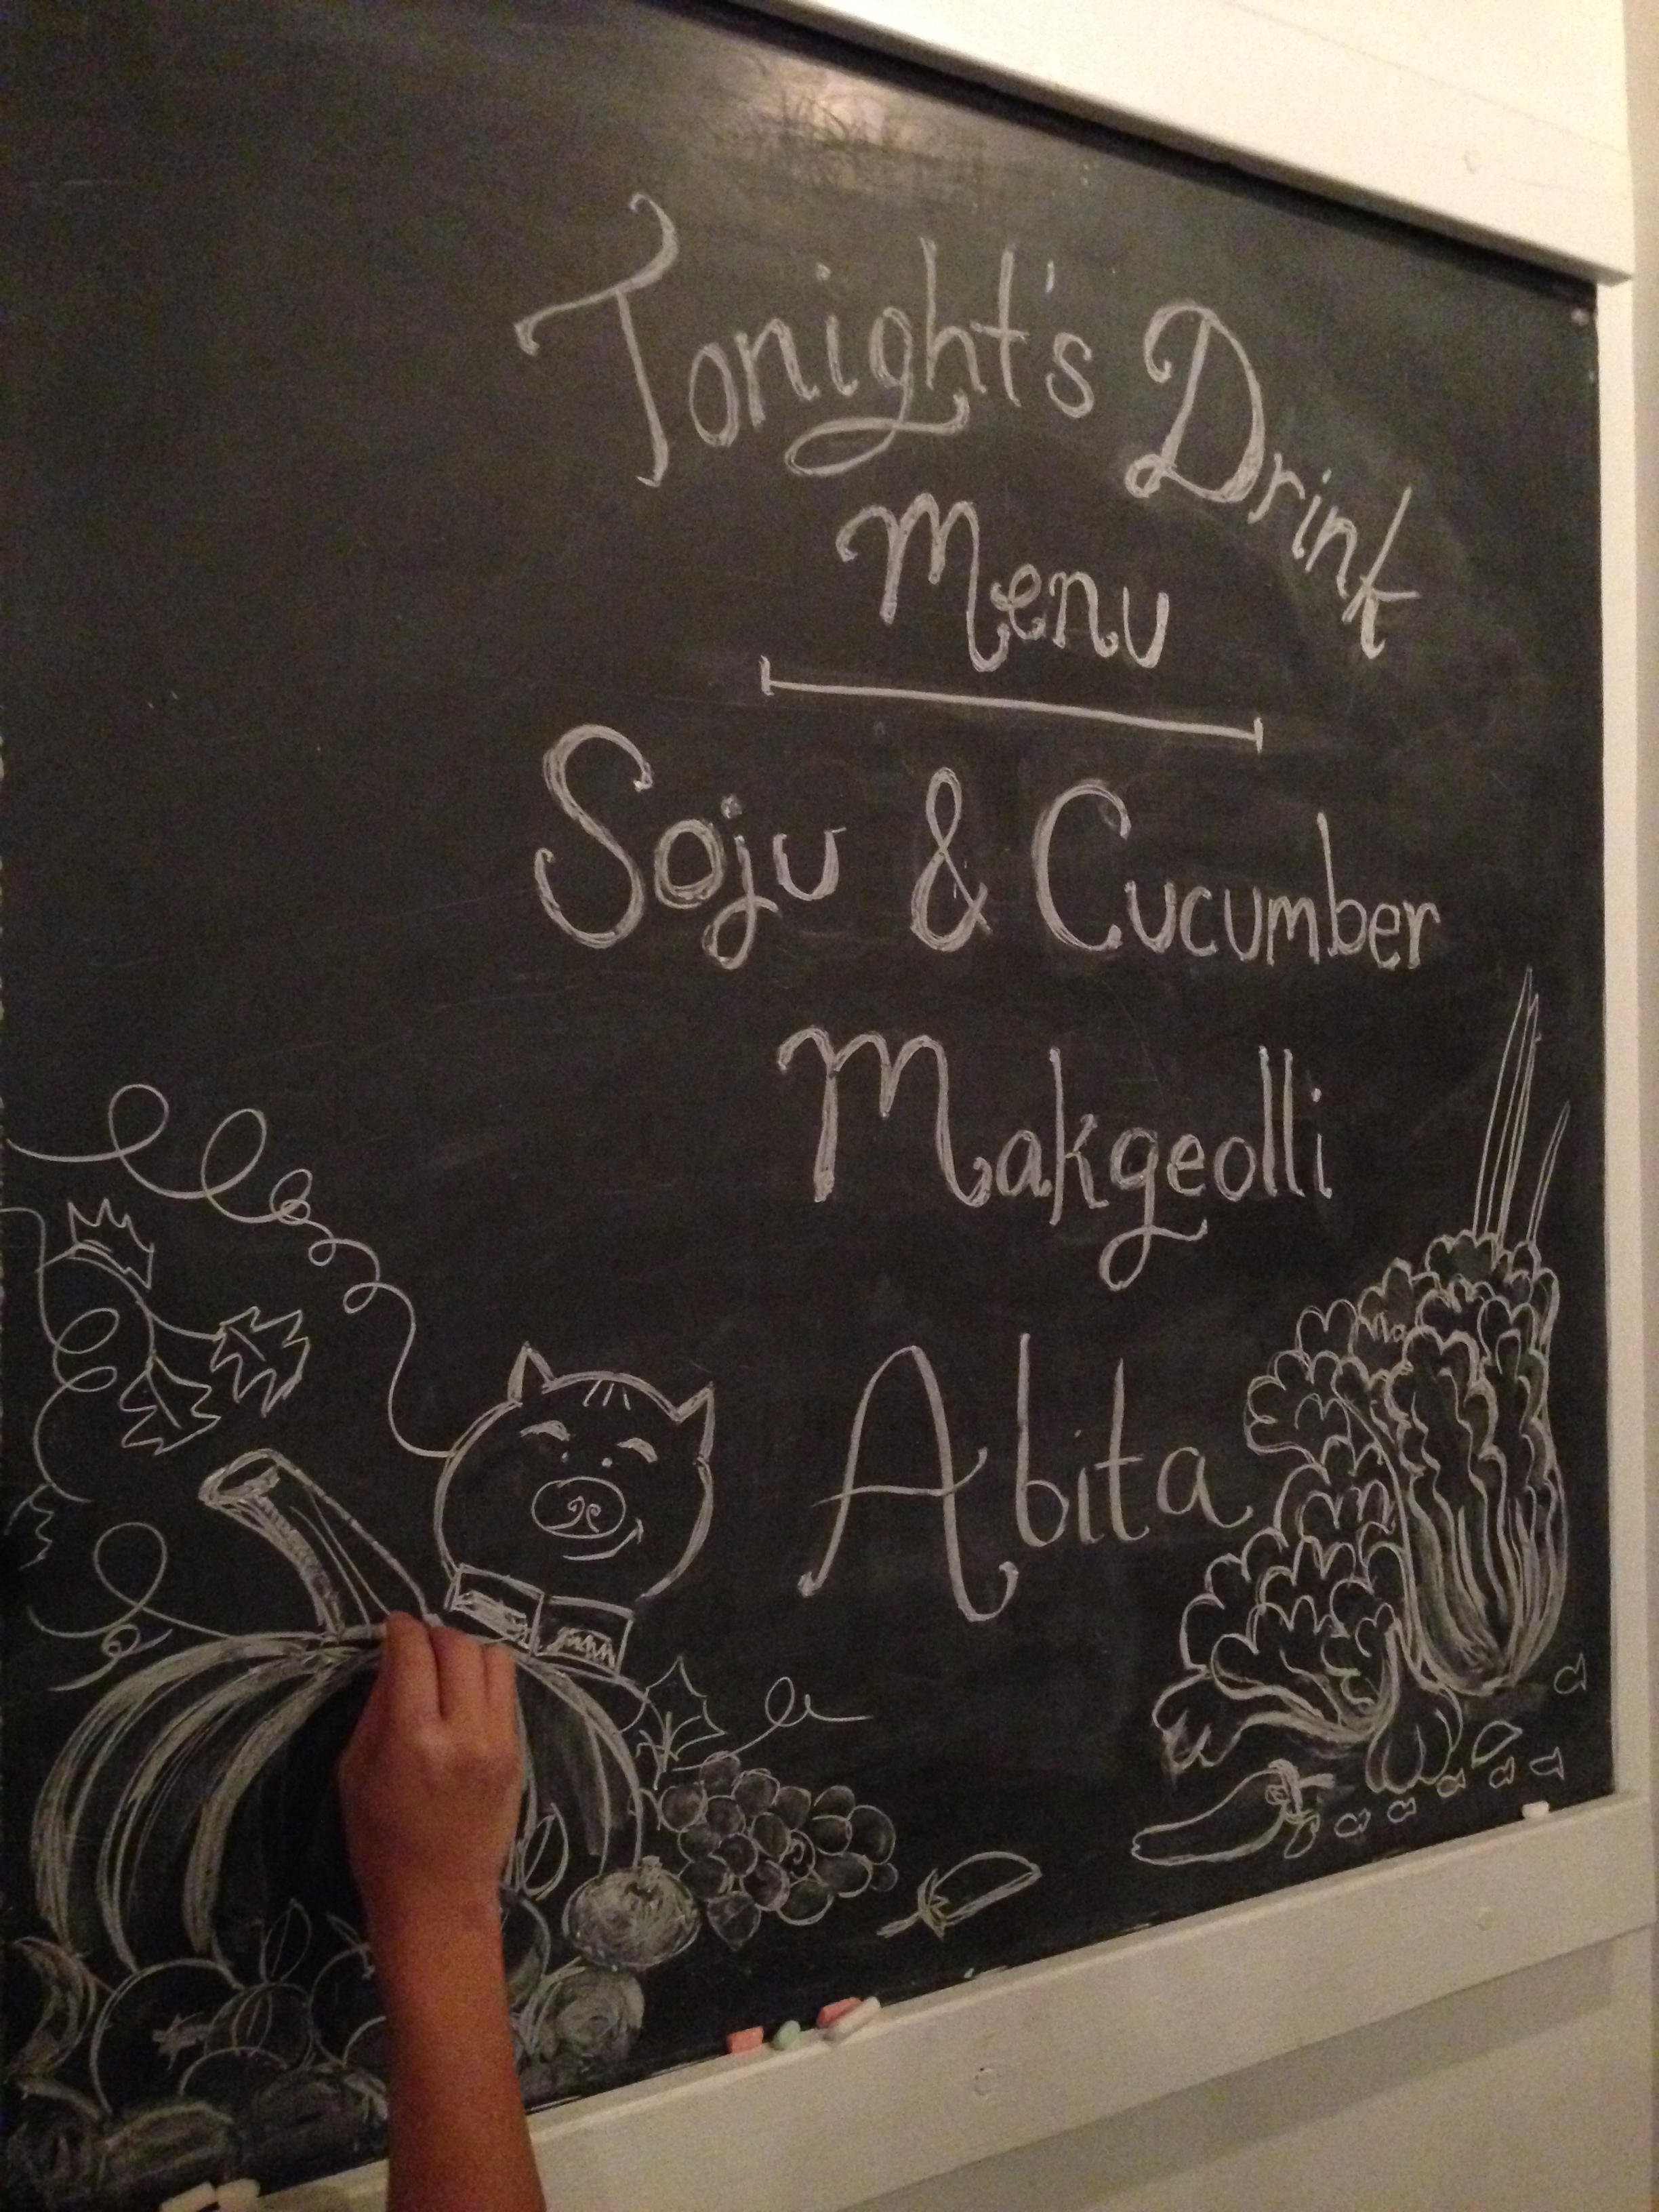 Tonight's Drink
Menu
Soju & Cucumber
Makgeolli
Abita